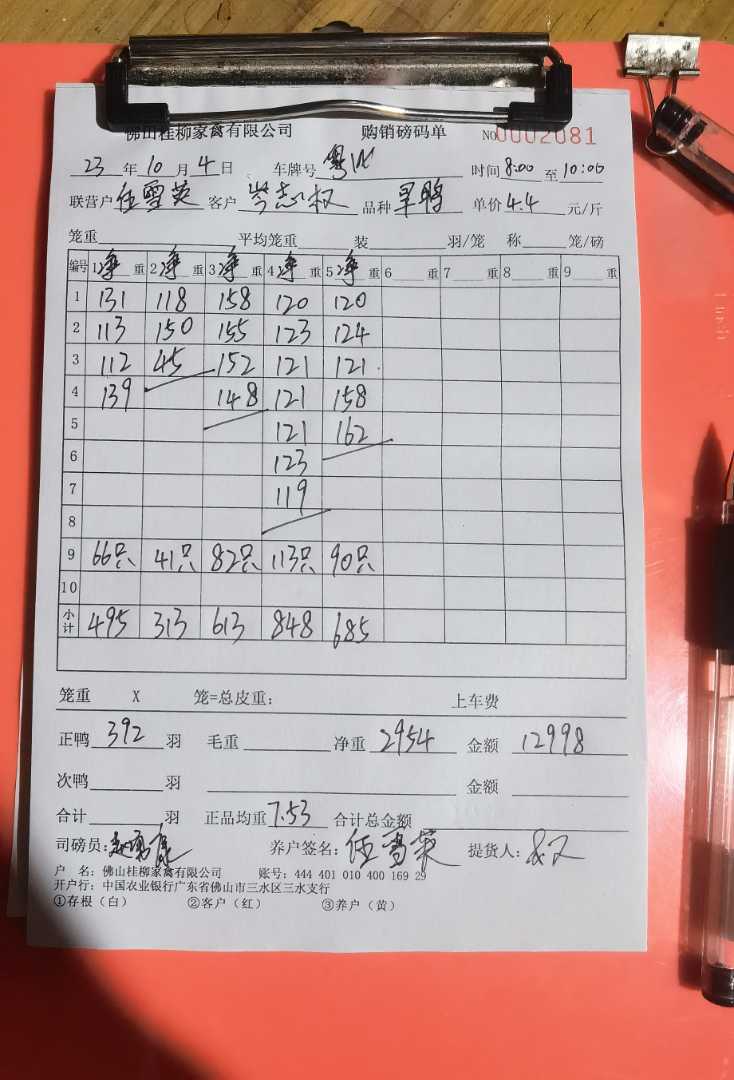 佛山桂柳家禽有限公司 购销磅码单 NO 0002081
23 年 10 月 4 日 车牌号 粤 时间 8:00 至 10:00
联营户 任雪英 客户 岑志权 品种 旱鸭 单价 4.4 元/斤
笼重 平均笼重 装 羽/笼 称 笼/磅
编号 1 净 重 2 净 重 3 净 重 4 净 重 5 净 重 6 重 7 重 8 重 9 重
1 131 118 158 120 120
2 113 150 155 123 124
3 112 45 152 121 121
4 139 148 121 158
5 121 162
6 123
7 119
8
9 66只 41只 82只 113只 90只
10
小计 495 313 613 848 685
笼重 X 笼=总皮重: 上车费
正鸭 392 羽 毛重 净重 2954 金额 12998
次鸭 羽 金额
合计 羽 正品均重 7.53 合计总金额
司磅员: 养户签名: 任雪英 提货人:
户 名: 佛山桂柳家禽有限公司 账号: 444 401 010 400 169 29
开户行: 中国农业银行广东省佛山市三水区三水支行
①存根（白） ②客户（红） ③养户（黄）